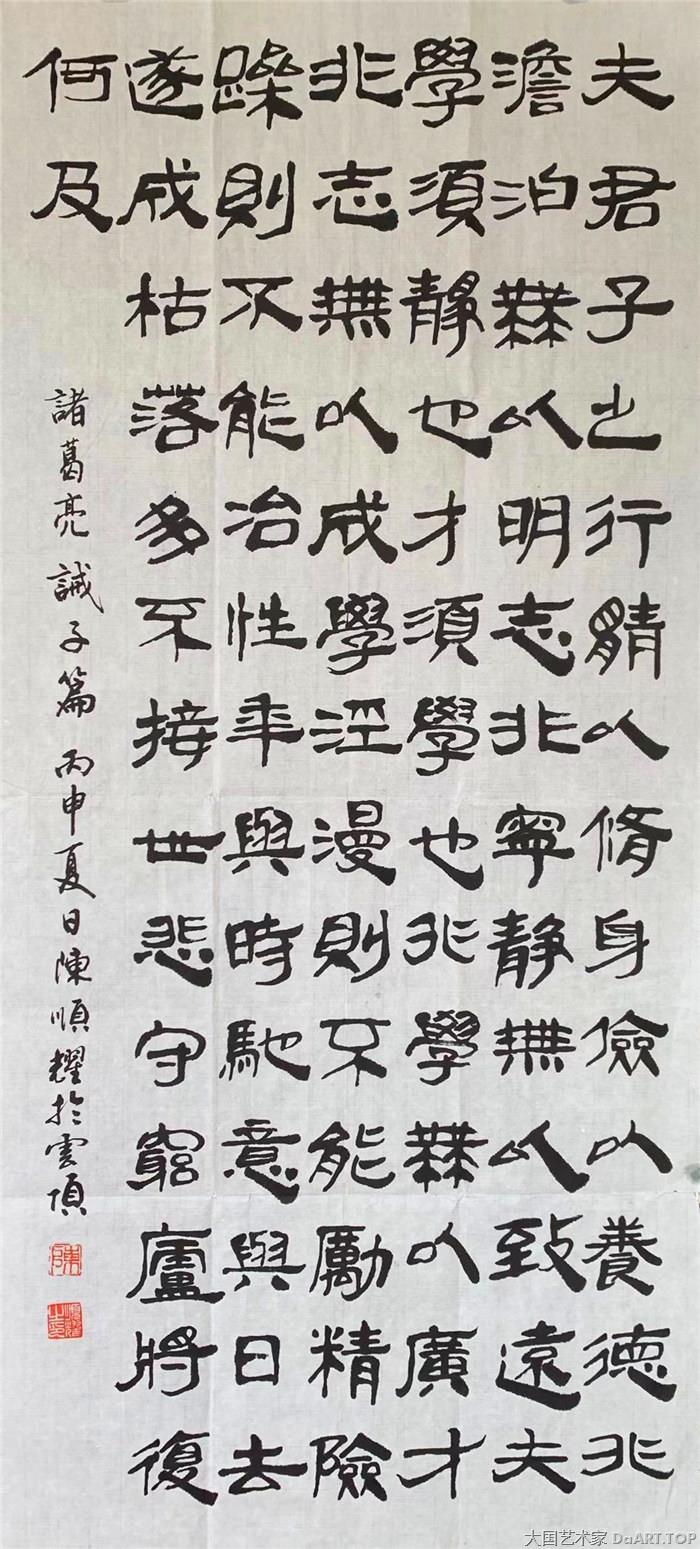 夫君子之行靜以脩身儉以養德非
澹泊無以明志非寧静無以致遠夫
學須静也才須學也非學無以廣才
非志無以成學淫漫則不能勵精險
躁則不能冶性年與時馳意與日去
遂成枯落多不接世悲守窮廬將復
何及
諸葛亮 誡子篇 丙申夏日陳順耀於雲頂
陳
順耀之印
大国艺术家 DaART.TOP